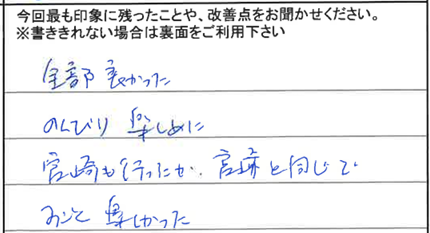 今回最も印象に残ったことや、改善点をお聞かせください。
※書ききれない場合は裏面をご利用下さい
全部良かった
のんびり 楽しめた
宮崎も行ったが、宮崎と同じで
楽しかった